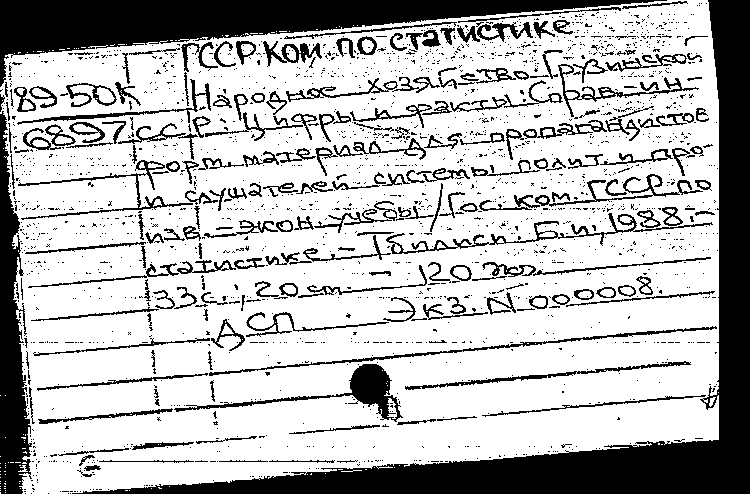 ГССР. Ком. по статистике
89-50К Народное хозяйство Грузинской
6897 ССР: Цифры и факты: Справ.-ин-
форм. материал для пропагандистов
и слушателей системы полит. и про-
изв.-экон. учебы / Гос. ком. ГССР по
статистике. - Тбилиси: Б.и., 1988. -
33 с.; 20 см. - 120 экз.
ДСП. Экз. N 000008.